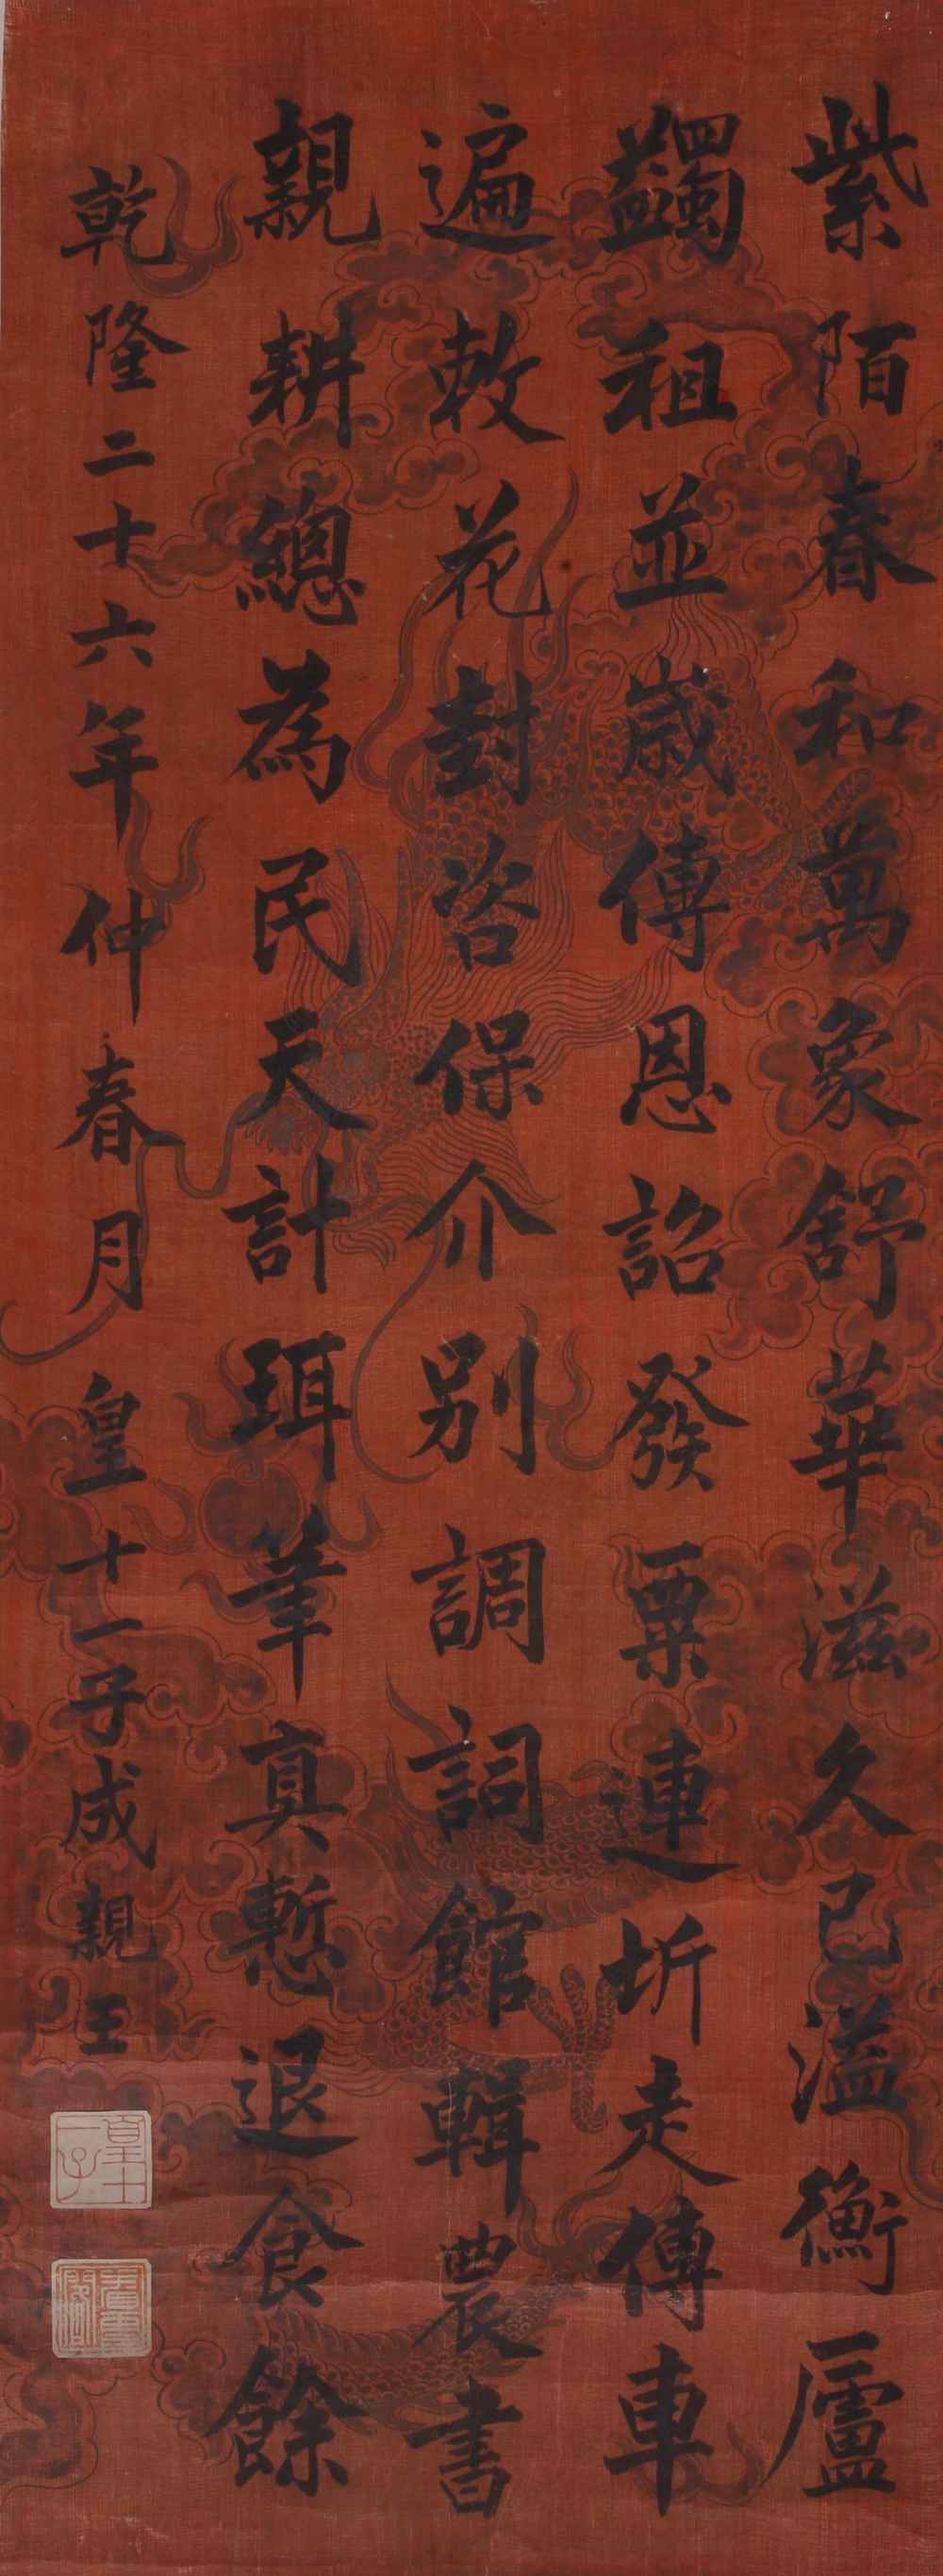 紫陌春和萬象舒華滋久已溢衡廬
蠲租並歲傳恩詔發粟連圻走傳車
遍敕花封咨保介別調詞館輯農書
親耕總為民天計珥筆真慙退食餘
乾隆二十六年仲春月皇十一子成親王
皇十一子